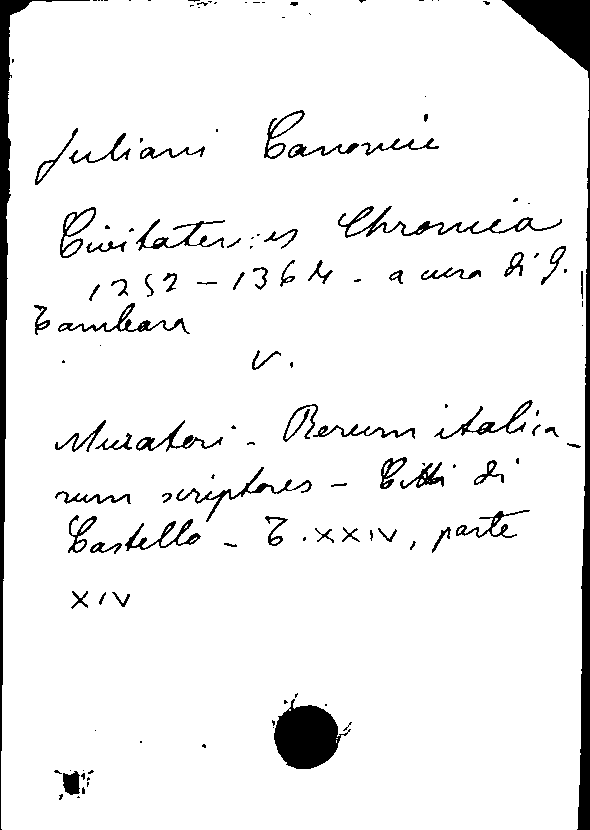 Juliani Canonici
Civitatensis Chronica
1252-1364 - a cura di G.
Tambara
V.
Muratori - Rerum italica-
rum scriptores - Città di
Castello - T. XXIV, parte
XIV